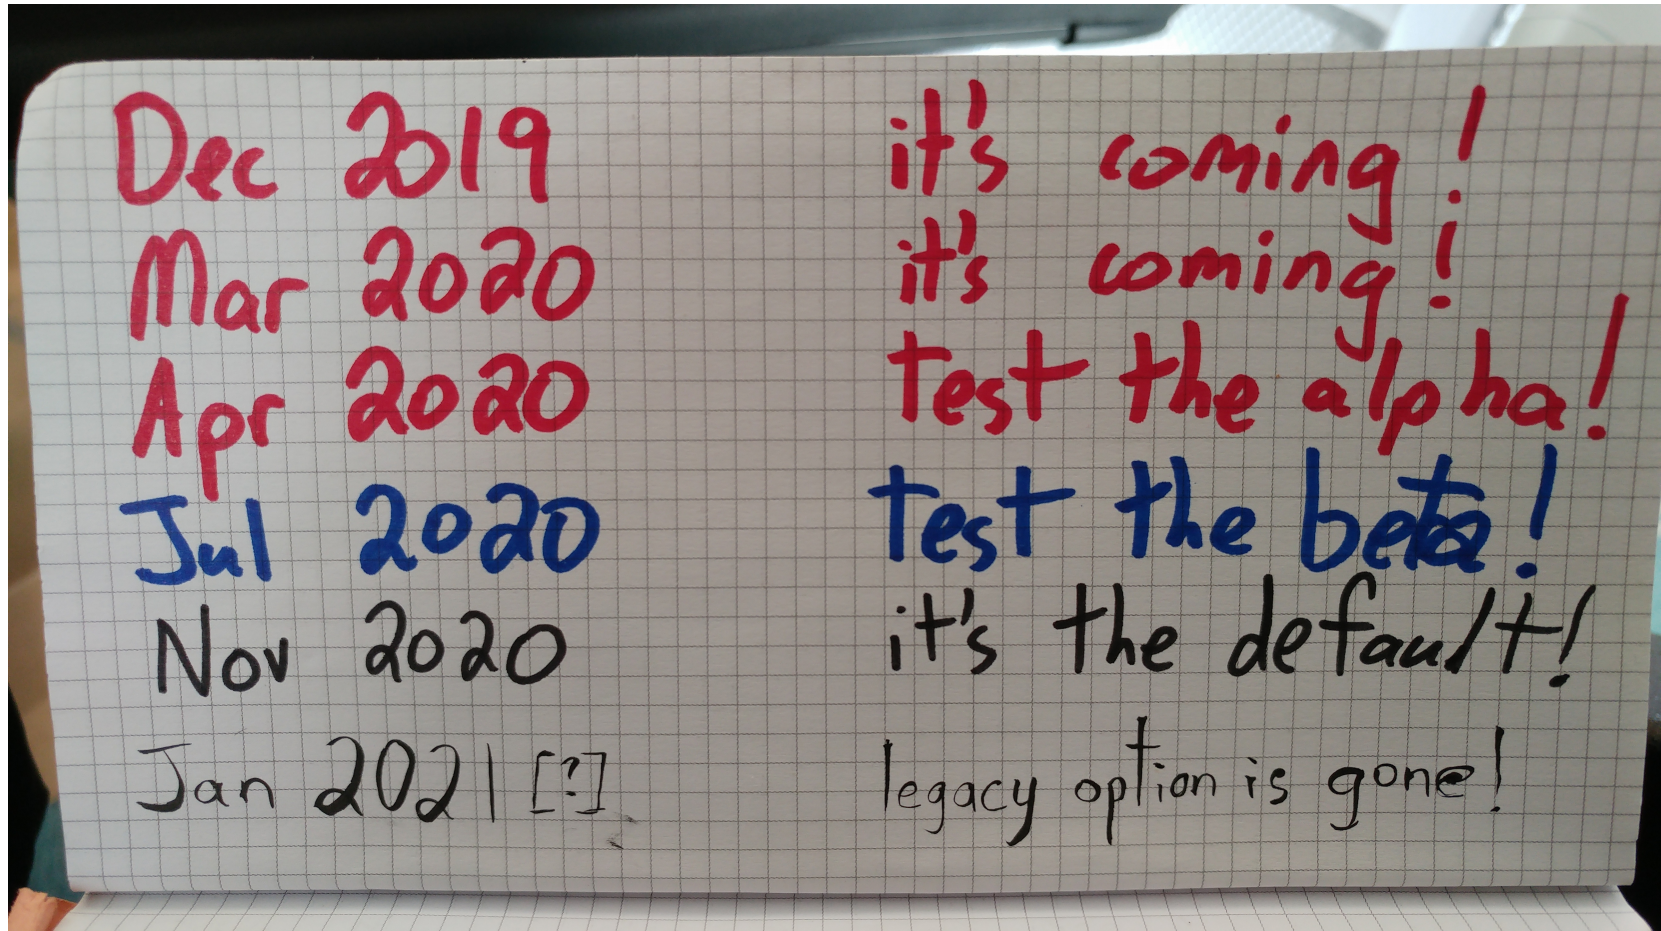 Dec 2019 it's coming!
Mar 2020 it's coming!
Apr 2020 test the alpha!
Jul 2020 test the beta!
Nov 2020 it's the default!
Jan 2021 [?] legacy option is gone!